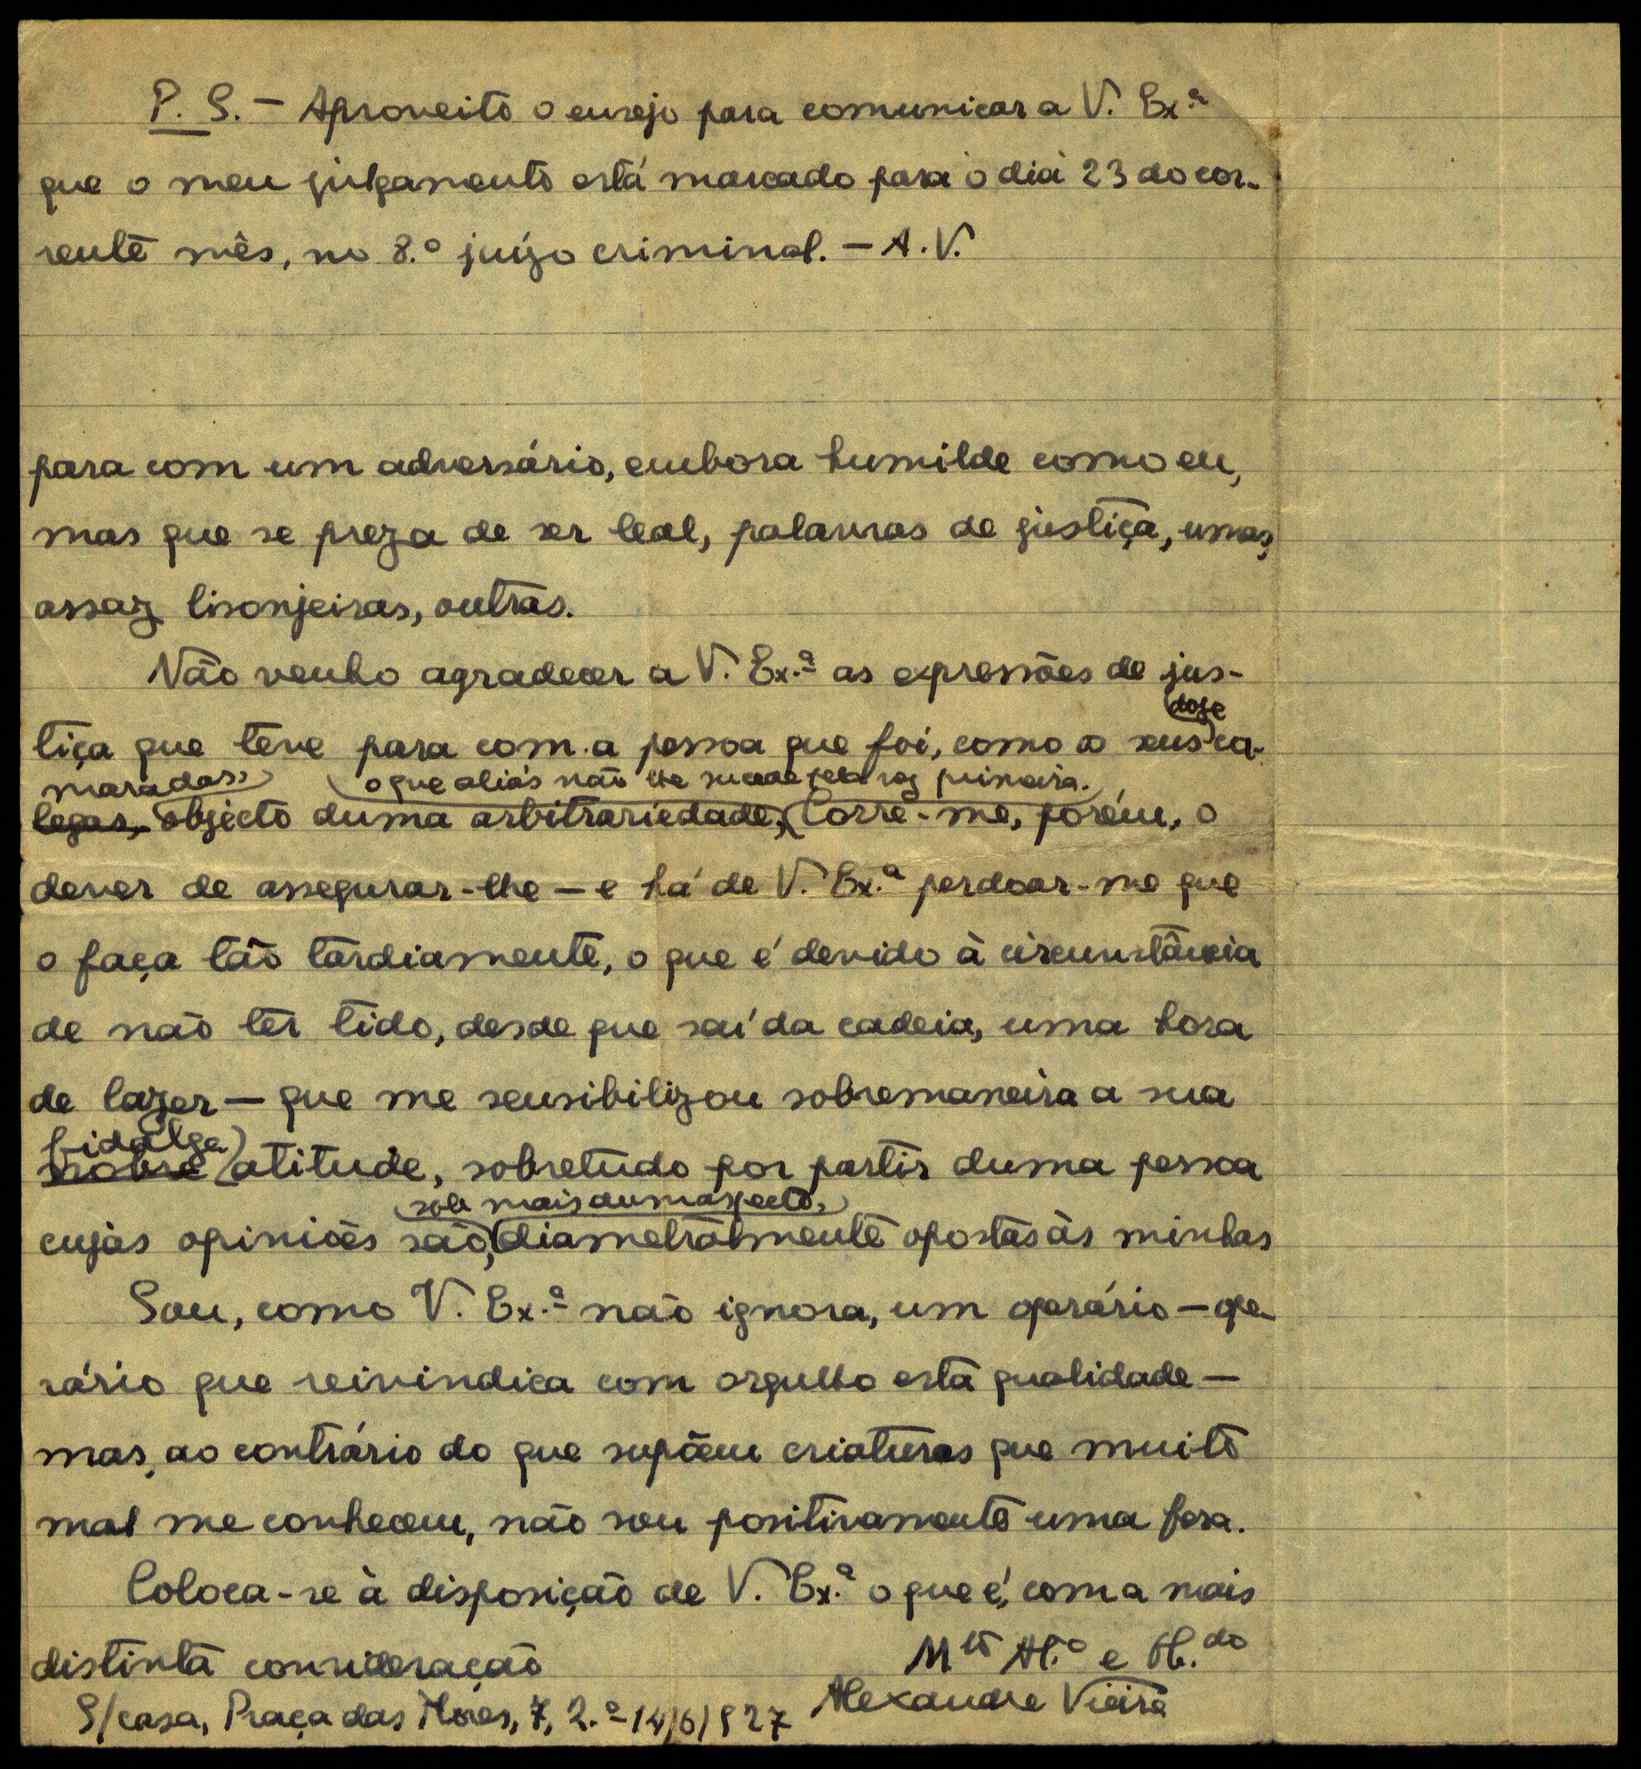 P. S. — Aproveito o ensejo para comunicar a V. Ex.ª
que o meu julgamento está marcado para o dia 23 do cor-
rente mês, no 8.º juízo criminal. — A. V.
para com um adversário, embora humilde como eu,
mas que se preza de ser leal, palavras de justiça, umas,
assaz lisonjeiras, outras.
Não venho agradecer a V. Ex.ª as expressões de jus-
doze
tiça que teve para com a pessoa que foi, como os seus ca-
maradas, o que aliás não lhe sucede pela vez primeira.
legas, objecto duma arbitrariedade, Corre-me, porém, o
dever de assegurar-lhe — e há de V. Ex.ª perdoar-me que
o faça tão tardiamente, o que é devido à circunstância
de não ter tido, desde que saí da cadeia, uma hora
de lazer — que me sensibilizou sobremaneira a sua
fidalga
nobre atitude, sobretudo por partir duma pessoa
sob mais dum aspecto,
cujas opiniões são, diametralmente opostas às minhas
Sou, como V. Ex.ª não ignora, um operário — ope-
rário que reivindica com orgulho esta qualidade —
mas, ao contrário do que supõem criaturas que muito
mal me conhecem, não sou positivamente uma fera.
Coloca-se à disposição de V. Ex.ª o que é, com a mais
distinta consideração
M.to At.º e Ob.do
Alexandre Vieira
S/casa, Praça das Flores, 7, 2.º - 14/6/927